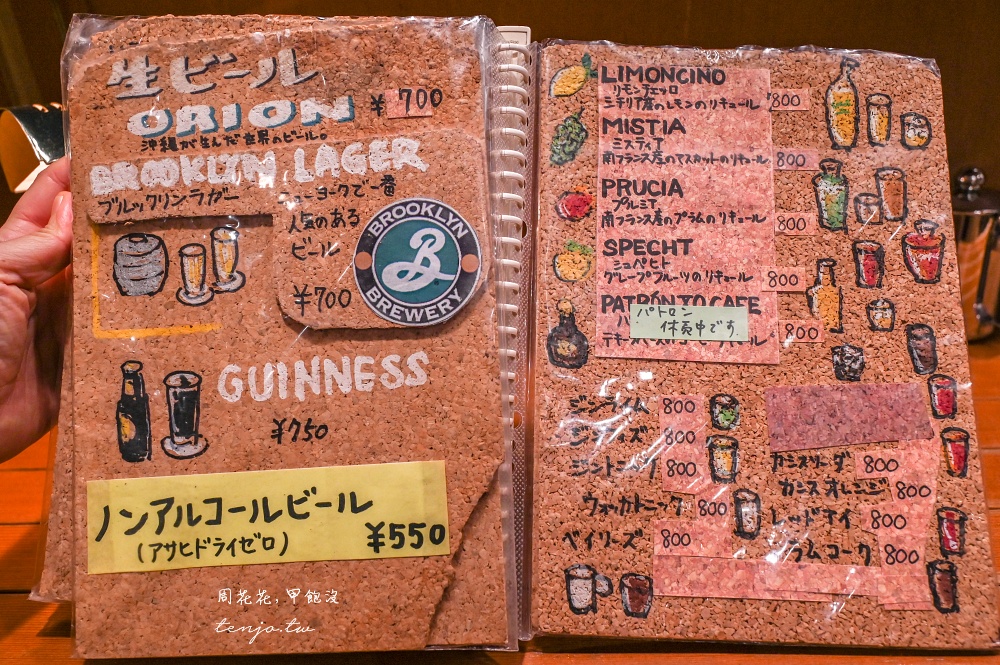 生ビール
ORION
¥700
沖縄が生んだ世界のビール。
BROOKLYN LAGER
ブルックリンラガー
ニューヨークで一番
人気のある
ビール
¥700
BROOKLYN
B
BREWERY
GUINNESS
¥750
ノンアルコールビール
(アサヒドライゼロ)
¥550
周花花, 甲飽沒
tenjo.tw
LIMONCINO
リモンチェッロ
シチリア産のレモンのリキュール 800
MISTIA
ミスティア
南フランス産のマスカットのリキュール 800
PRUCIA
プルシア
南フランス産のプラムのリキュール 800
SPECHT
シュペヒト
グレープフルーツのリキュール 800
PATRÓN XO CAFE
パトロン
休売中です
800
ジンライム 800
800
ジントニック 800
ウォッカトニック 800
ベイリーズ 800
カシスソーダ 800
カシスオレンジ 800
レッドアイ 800
ラムコーク 800